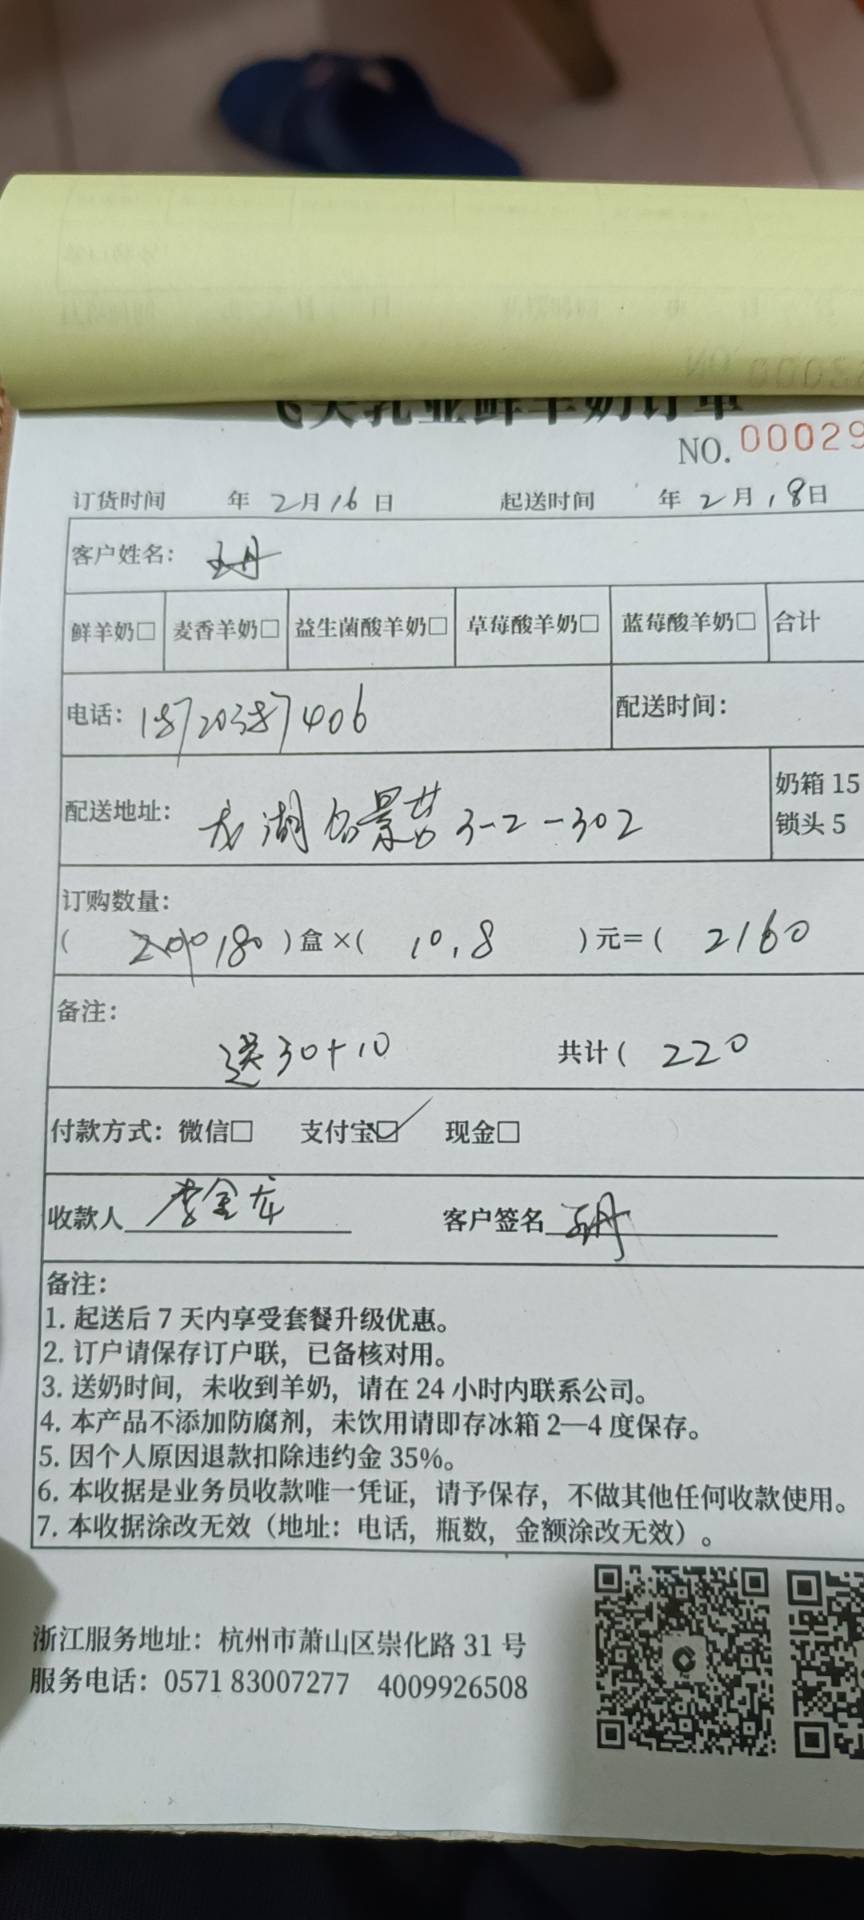 飞天乳业鲜羊奶订单
NO. 00029
订货时间 年 2月16日 起送时间 年 2月18日
客户姓名： 王丹
鲜羊奶□ 麦香羊奶□ 益生菌酸羊奶□ 草莓酸羊奶□ 蓝莓酸羊奶□ 合计
电话：18720387406 配送时间：
配送地址： 龙湖 景 3-2-302
奶箱 15
锁头 5
订购数量：
( 200 180 ) 盒 ×( 10.8 ) 元＝( 2160
备注：
送30+10 共计 ( 220
付款方式：微信□ 支付宝☑ 现金□
收款人 李金龙 客户签名 王丹
备注：
1. 起送后 7 天内享受套餐升级优惠。
2. 订户请保存订户联，已备核对用。
3. 送奶时间，未收到羊奶，请在 24 小时内联系公司。
4. 本产品不添加防腐剂，未饮用请即存冰箱 2—4 度保存。
5. 因个人原因退款扣除违约金 35%。
6. 本收据是业务员收款唯一凭证，请予保存，不做其他任何收款使用。
7. 本收据涂改无效（地址：电话，瓶数，金额涂改无效）。
浙江服务地址：杭州市萧山区崇化路 31 号
服务电话：0571 83007277 4009926508